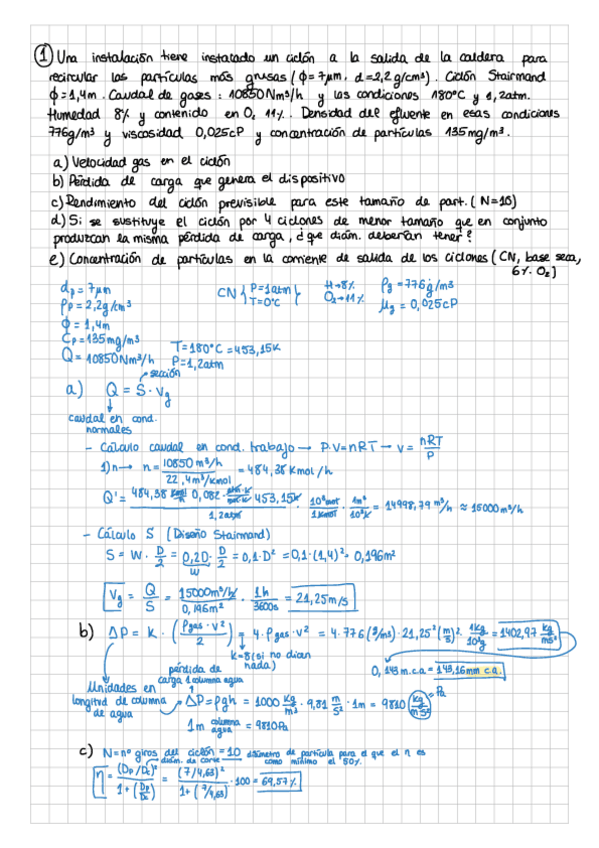 ① Una instalación tiene instalado un ciclón a la salida de la caldera para
recircular las partículas más gruesas (ϕ=7μm, d=2,2g/cm³). Ciclón Stairmand
ϕ=1,4m. Caudal de gases: 10850Nm³/h y las condiciones 180°C y 1,2atm.
Humedad 8% y contenido en O₂ 11%. Densidad del efluente en esas condiciones
776g/m³ y viscosidad 0,025cP y concentración de partículas 135mg/m³.
a) Velocidad gas en el ciclón
b) Pérdida de carga que genera el dispositivo
c) Rendimiento del ciclón previsible para este tamaño de part. (N=10)
d) Si se sustituye el ciclón por 4 ciclones de menor tamaño que en conjunto
produzcan la misma pérdida de carga, ¿que diám. deberían tener?
e) Concentración de partículas en la corriente de salida de los ciclones (CN, base seca,
6% O₂)
dp = 7μm
ρp = 2,2g/cm³
ϕ = 1,4m
Cp = 135mg/m³
Q = 10850Nm³/h
T = 180°C = 453,15K
P = 1,2atm
CN { P=1atm
T=0°C }
H→8%
O₂→11%
ρg = 776g/m³
μg = 0,025cP
a) Q = S · Vg
sección
caudal en cond.
normales
- Cálculo caudal en cond. trabajo → P·V=nRT → V = nRT/P
1) n → n = 10850 m³/h / 22,4m³/kmol = 484,38 Kmol/h
Q' = 484,38 kmol · 0,082 · atm·L/mol·K · 453,15K / 1,2atm · 10³mol/1kmol · 1m³/10³L = 14998,79 m³/h ≈ 15000m³/h
- Cálculo S (Diseño Stairmand)
S = W · D/2 = 0,2D · D/2 = 0,1·D² = 0,1·(1,4)² = 0,196m²
W
Vg = Q/S = 15000m³/h / 0,196m² · 1h/3600s = 21,25m/s
b) ΔP = K · (ρgas · v² / 2) = 4·ρgas·v² = 4·776(g/m³)·21,25²(m/s)² · 1kg/10³g = 1402,97 kg/ms²
K=8 (si no dicen
nada)
0,143 m.c.a = 143,16mm c.a.
Unidades en
longitud de columna
de agua
pérdida de
carga 1 columna agua
ΔP = ρgh = 1000 kg/m³ · 9,81 m/s² · 1m = 9810 (kg/m s²) = Pa
1m columna agua = 9810Pa
c) N = nº giros del ciclón = 10
diám. de corte → diámetro de partícula para el que el η es
como mínimo el 50%.
η = (Dp/Dc)² / 1+(Dp/Dc) = (7/4,63)² / 1+(7/4,63)² · 100 = 69,57%